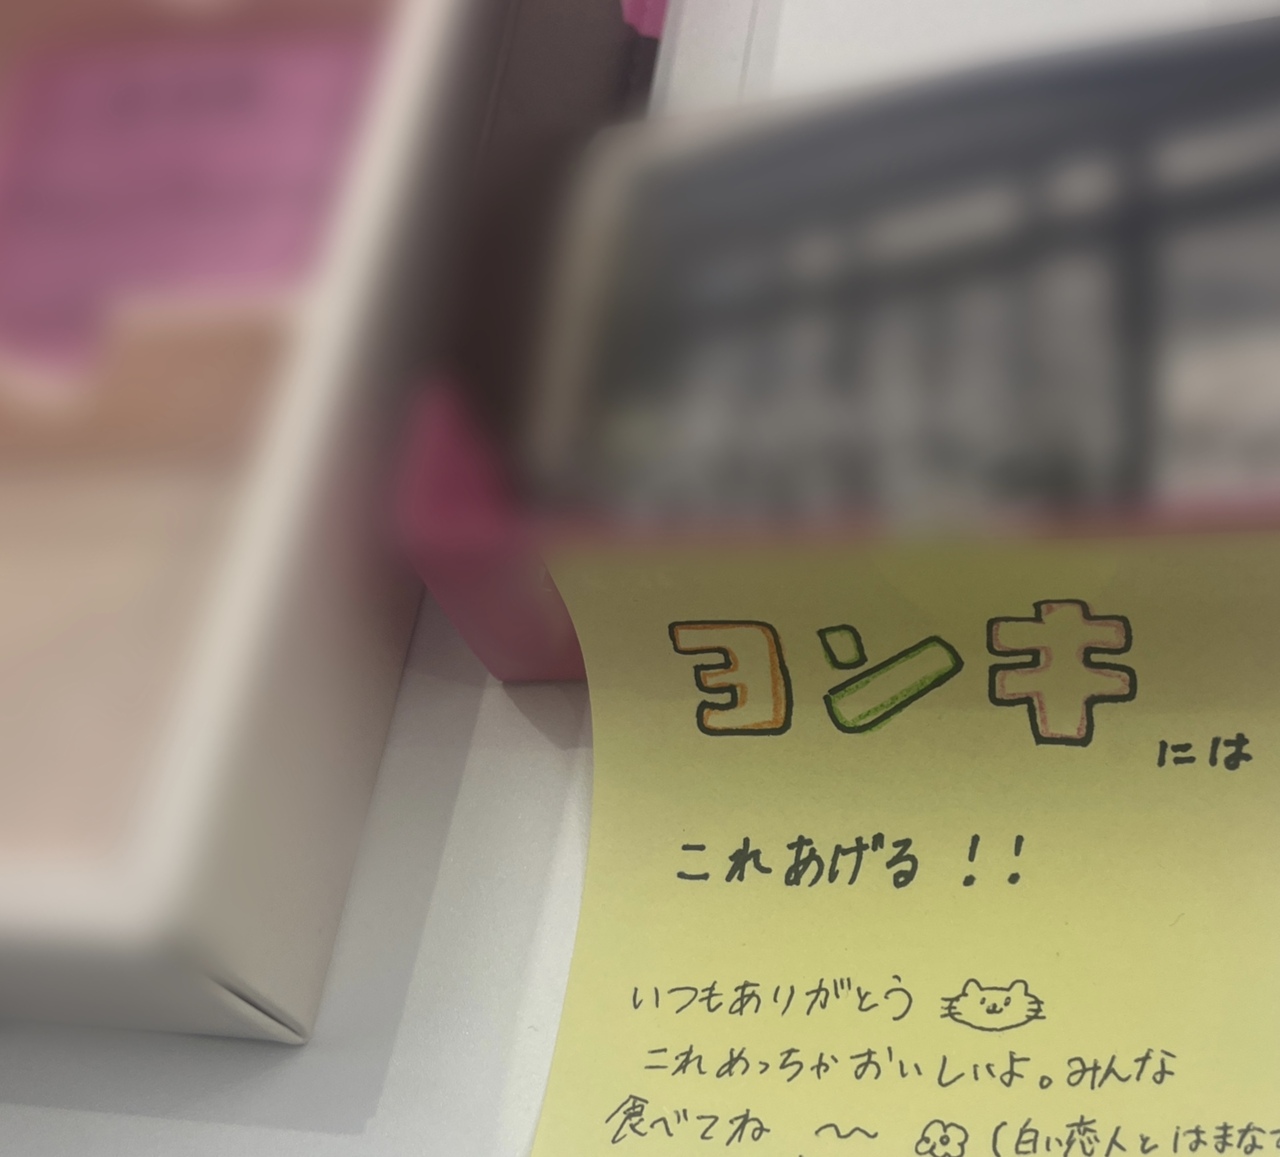 ヨンキには
これあげる！！
いつもありがとう
これめっちゃおいしいよ。みんな
食べてね 〜〜 (白い恋人とはまなす